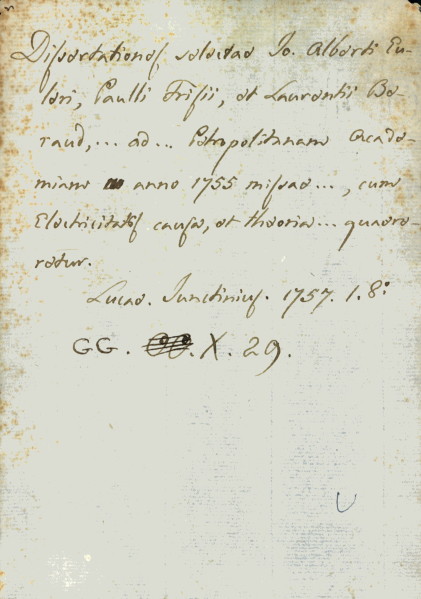 Dissertationes selectae Jo. Alberti Eu-
leri, Paulli Frisii, et Laurentii Be-
raud,... ad... Petropolitanam Acade-
miam anno 1755 missae..., cum
Electricitatis causa, et theoria... quaere-
retur.
Lucae. Junctinius. 1757. 1. 8:
GG. X. 29.